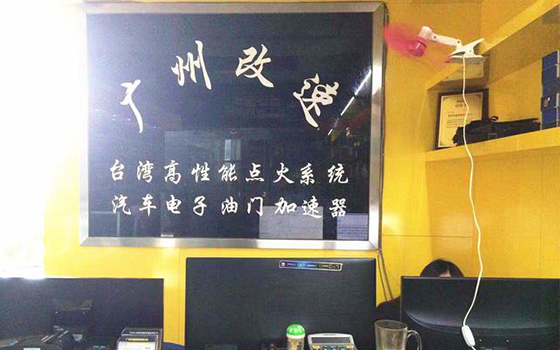 广州改速
台湾高性能点火系统
汽车电子油门加速器